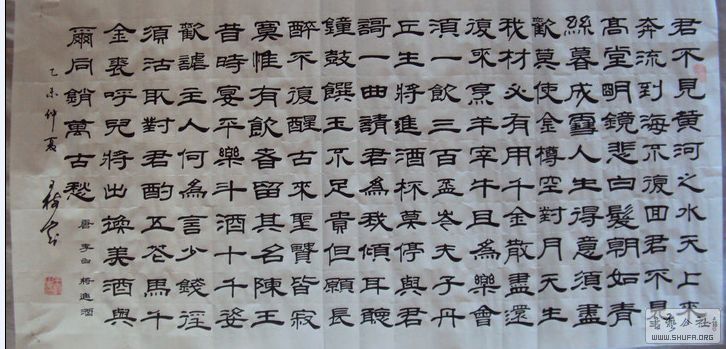 君不見黃河之水天上來
奔流到海不復回君不見
高堂明鏡悲白髮朝如青
絲暮成雪人生得意須盡
歡莫使金樽空對月天生
我材必有用千金散盡還
復來烹羊宰牛且為樂會
須一飲三百盃岑夫子丹
丘生將進酒杯莫停與君
謌一曲請君為我傾耳聽
鐘鼓饌玉不足貴但願長
醉不復醒古來聖賢皆寂
寞惟有飲者留其名陳王
昔時宴平樂斗酒十千恣
歡謔主人何為言少錢徑
須沽取對君酌五花馬千
金裘呼兒將出換美酒與
爾同銷萬古愁
唐李白將進酒
乙未仲夏
書藝公社
WWW.SHUFA.ORG